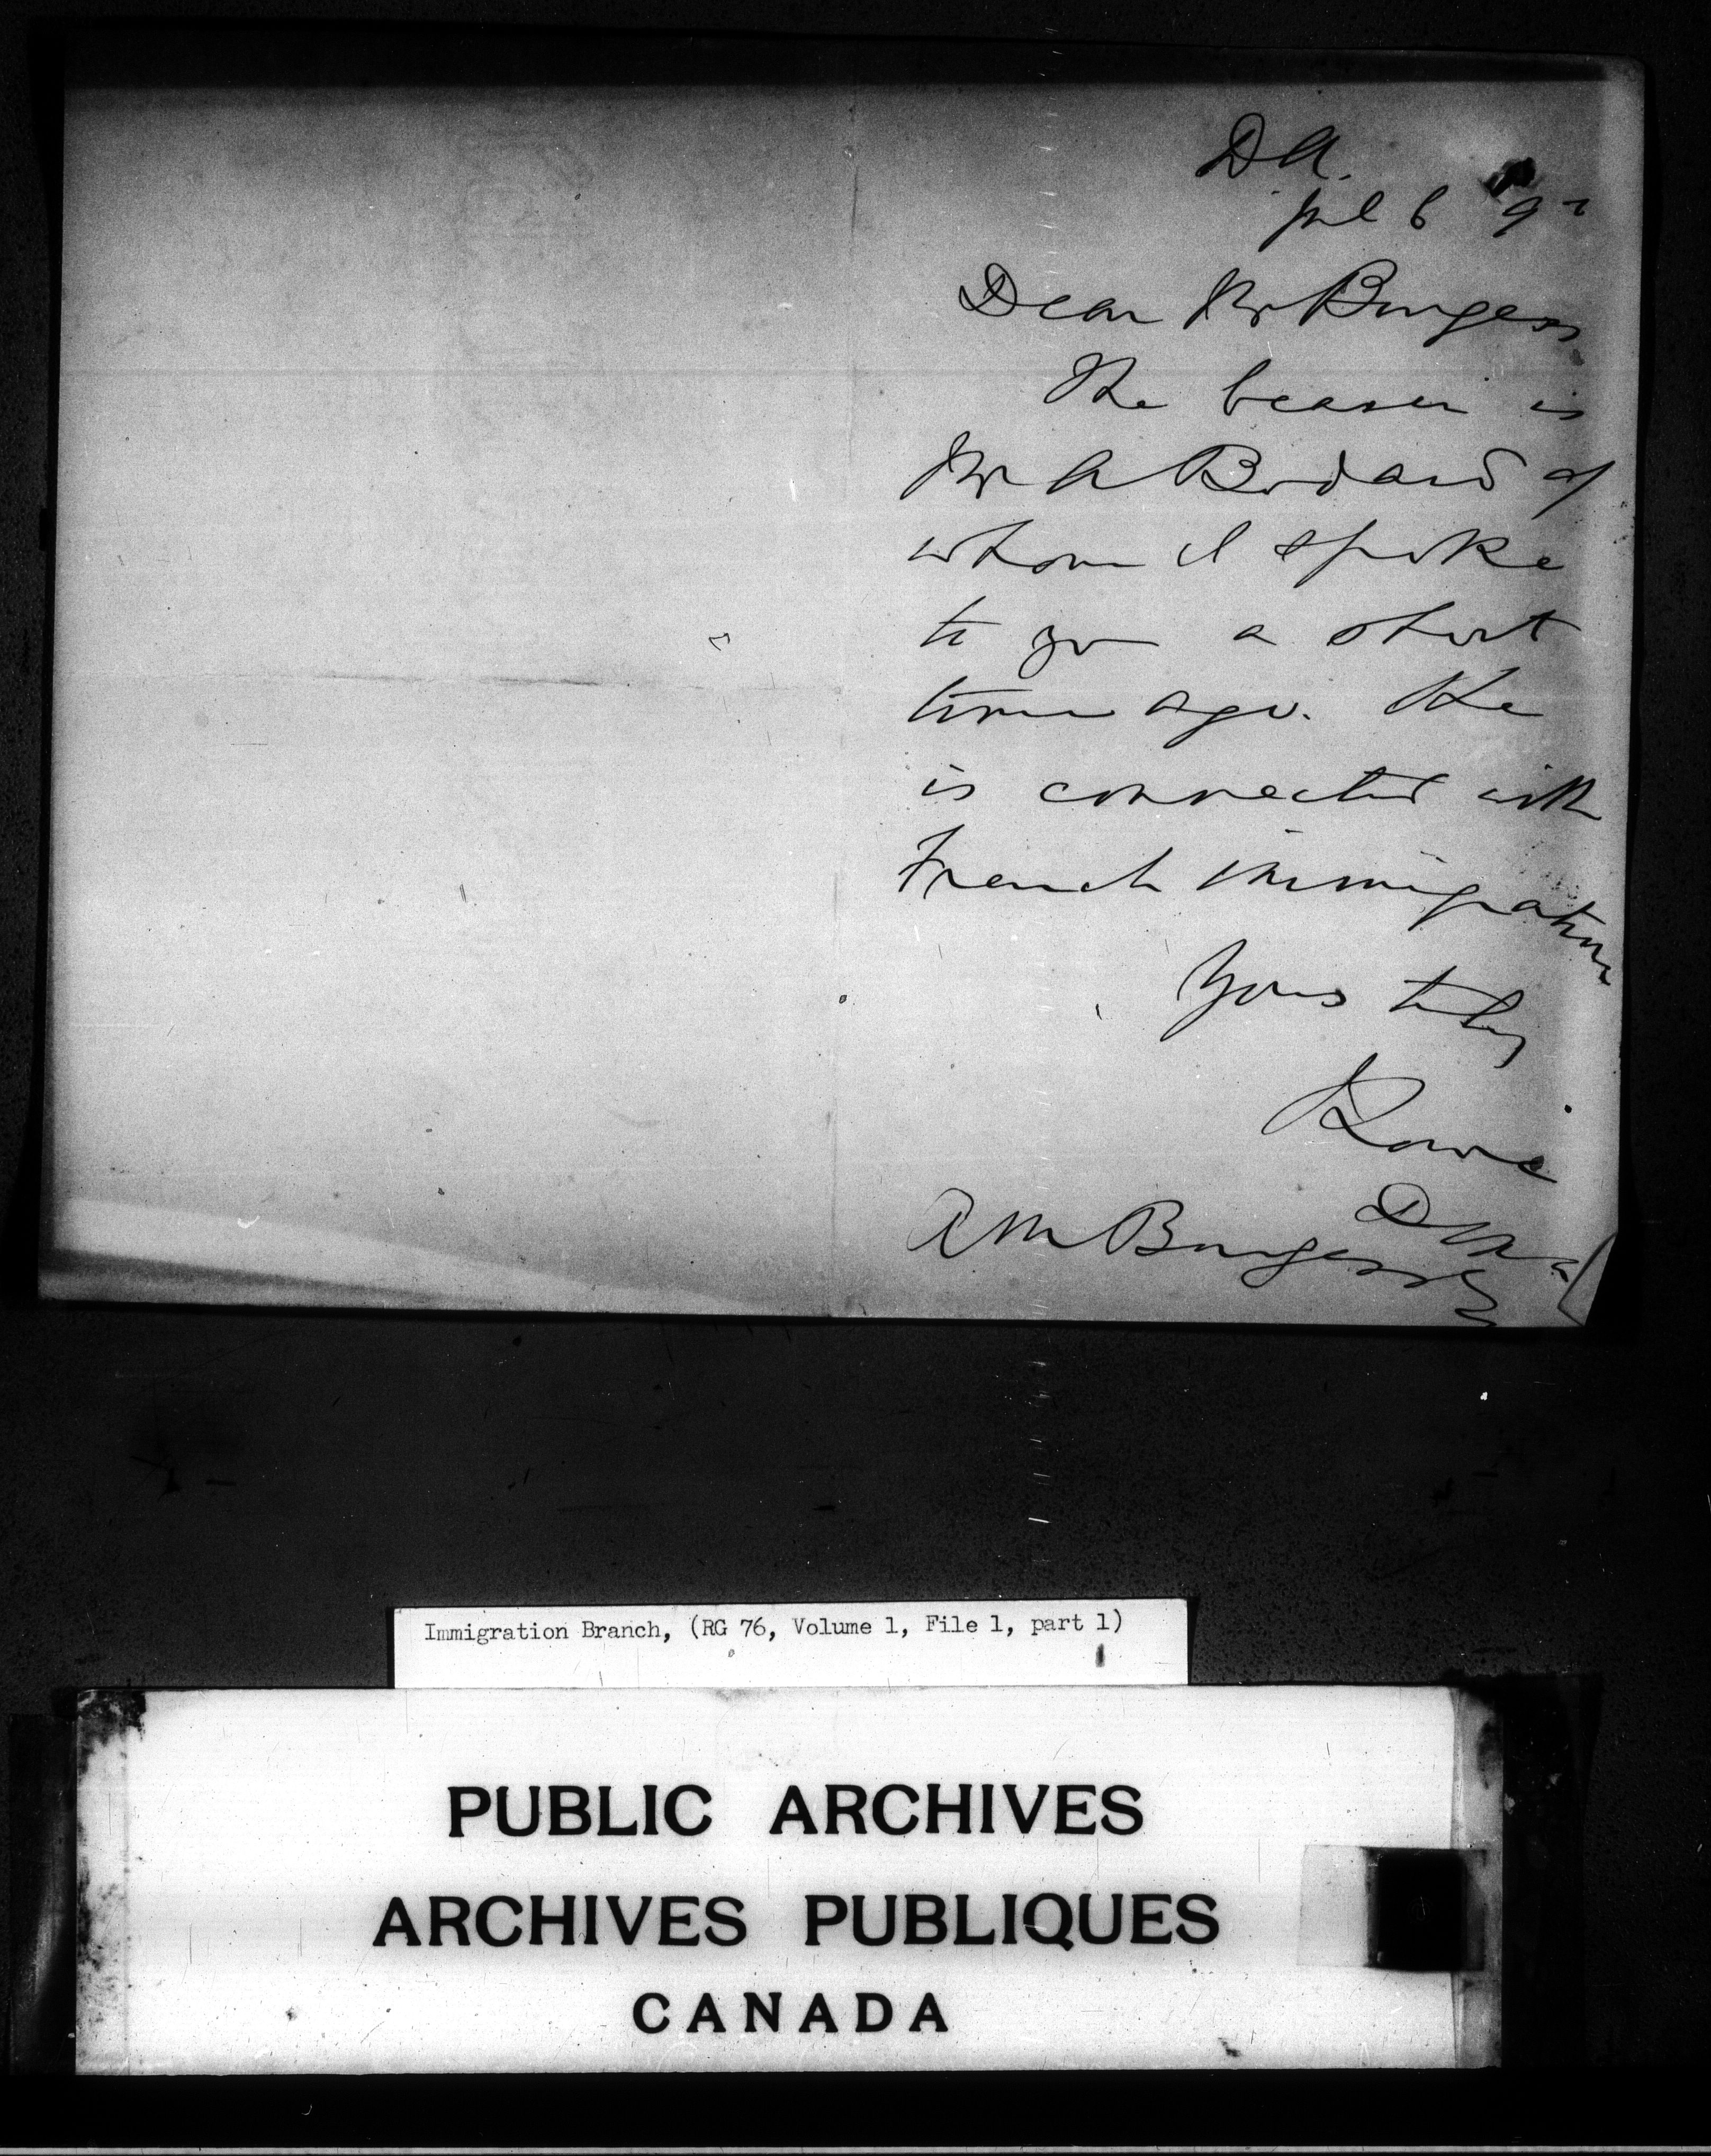 DA.
Jul 6 92
Dear Mr Burgess
The bearer is
Mr A Bodard of
whom I spoke
to you a short
time ago. He
is connected with
French immigration
Yours truly
Lowe
DMA
A M Burgess
Immigration Branch, (RG 76, Volume 1, File 1, part 1)
PUBLIC ARCHIVES
ARCHIVES PUBLIQUES
CANADA